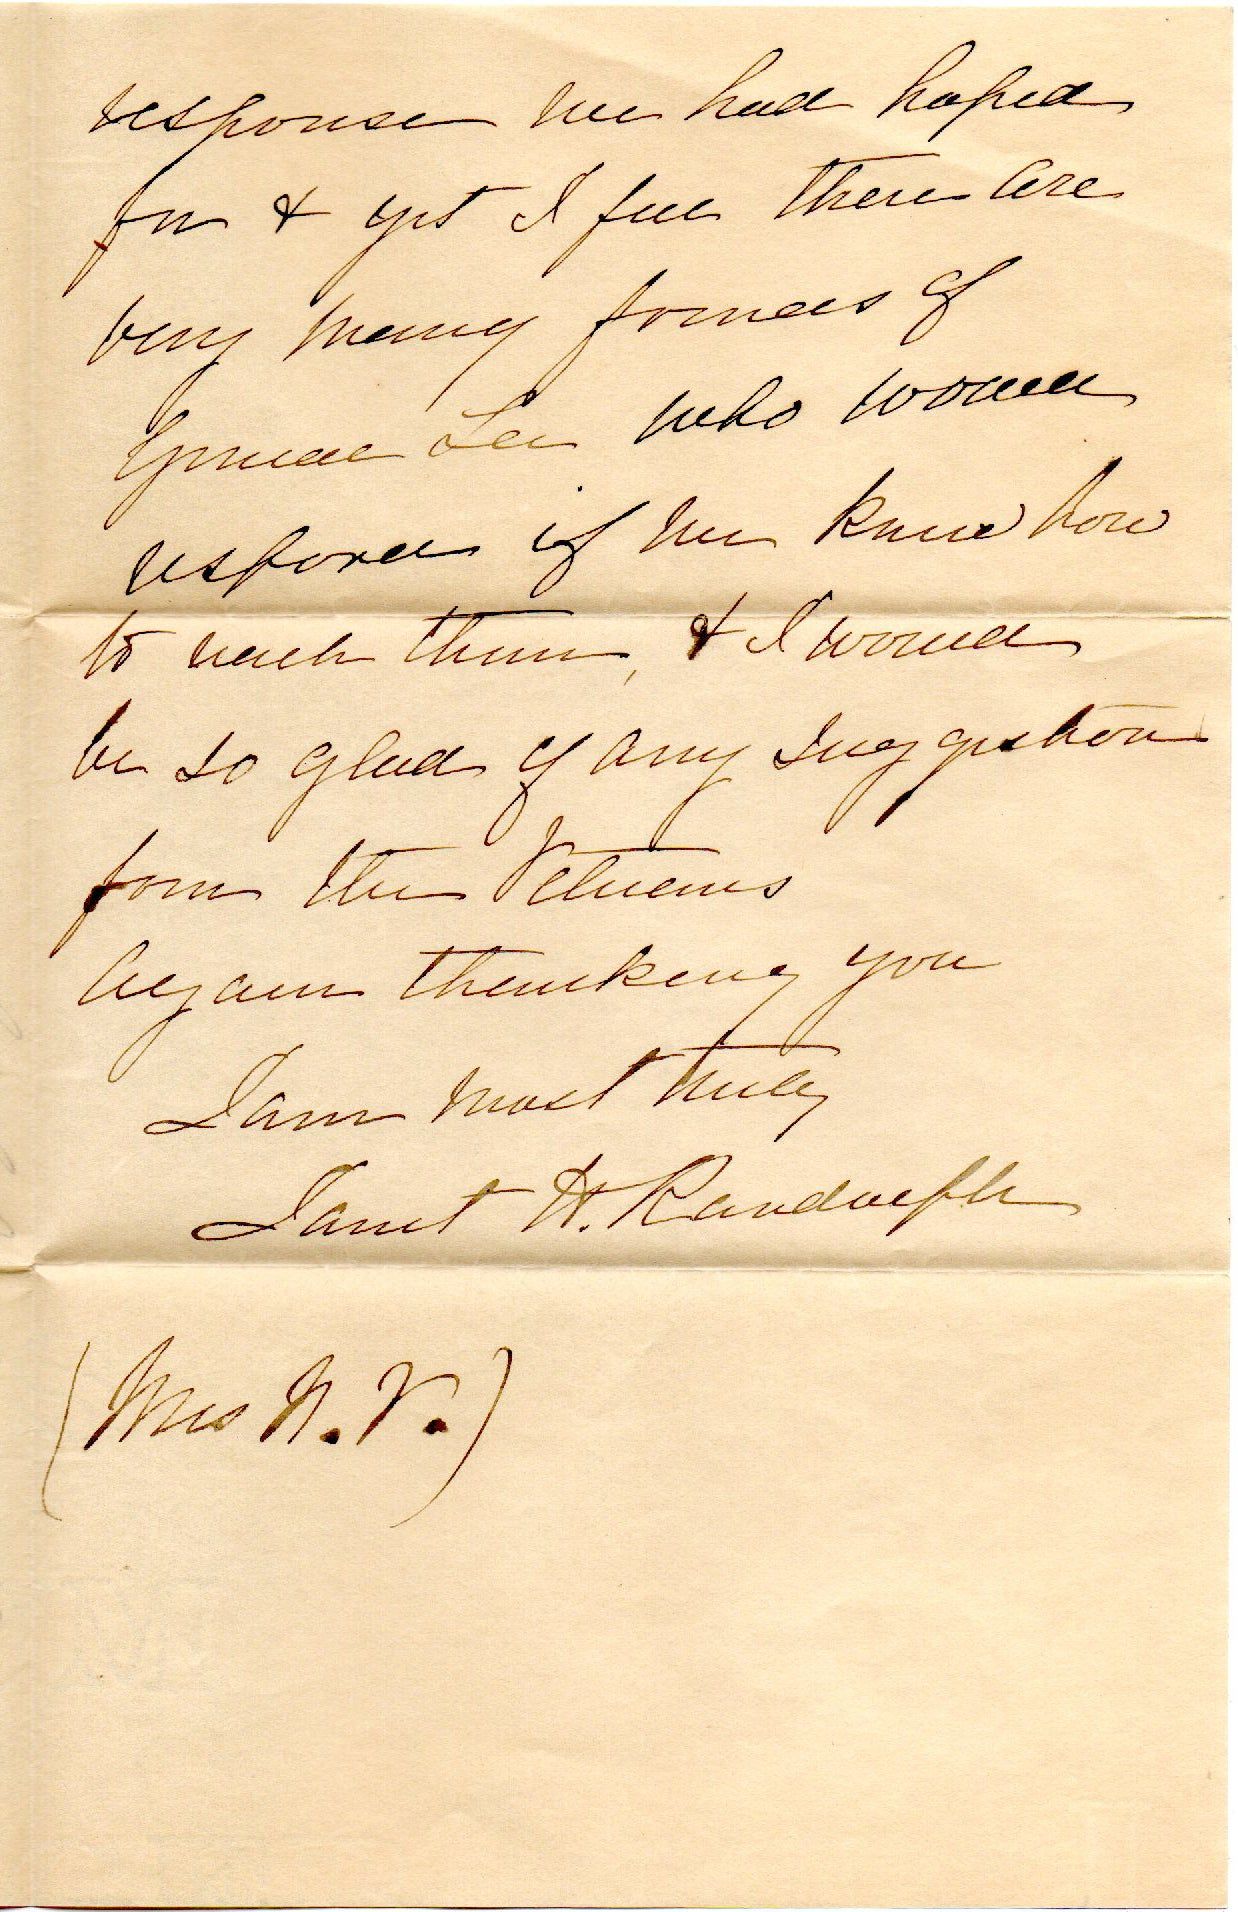 response we had hoped
for & yet I feel there are
very many friends of
General Lee who would
respond if we knew how
to reach them, & I would
be so glad of any suggestion
from the Veterans
Again thanking you
I am most truly
Janet H. Randolph
(Mrs N. V.)